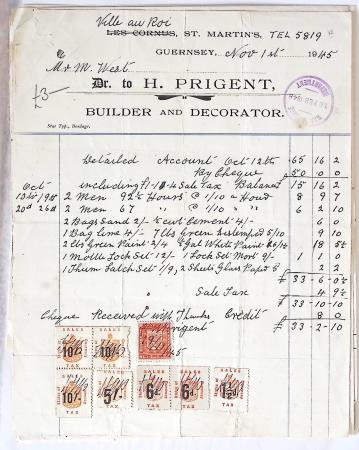 Ville au Roi
LES CORNUS, ST. MARTIN'S, TEL 5819
GUERNSEY, Nov 1st 1945
Mr M. West
£3-
Dr. to H. PRIGENT,
BUILDER AND DECORATOR.
Star Typ., Bordage.
Detailed Account Oct 12th 65 16 2
By Cheque 50 0 0
Oct including Sale Tax Balance 15 16 2
13 to 19th 2 Men 92½ Hours @ 1/10 a Hour 8 9 7
20 26th 2 Men 67 " @ 1/10 " " 6 2 10
2 Bags Sand 2/- ½ cwt Cement 4/- 6 0
1 Bag lime 4/- 7 lbs Green Distemped 5/10 9 10
2 lbs Green Paint 2/4 ½ Gal White Paint 18 5½
1 Mottle Lock Set 12/- 1 Lock Set Mort 9/- 1 1 0
1 Thum Latch Set 1/9, 2 Sheets Glass Paper 5 2 2
£ 33-6-0½
Sale Tax 4 9½
£ 33-10-10
Cheque Received with Thanks Credit 8 0
Prigent £ 33-2-10
SALES TAX 10/-
SALES TAX 10/-
SALES TAX 10/-
SALES TAX 5/-
SALES TAX 6d
SALES TAX 6d
SALES TAX 1½d